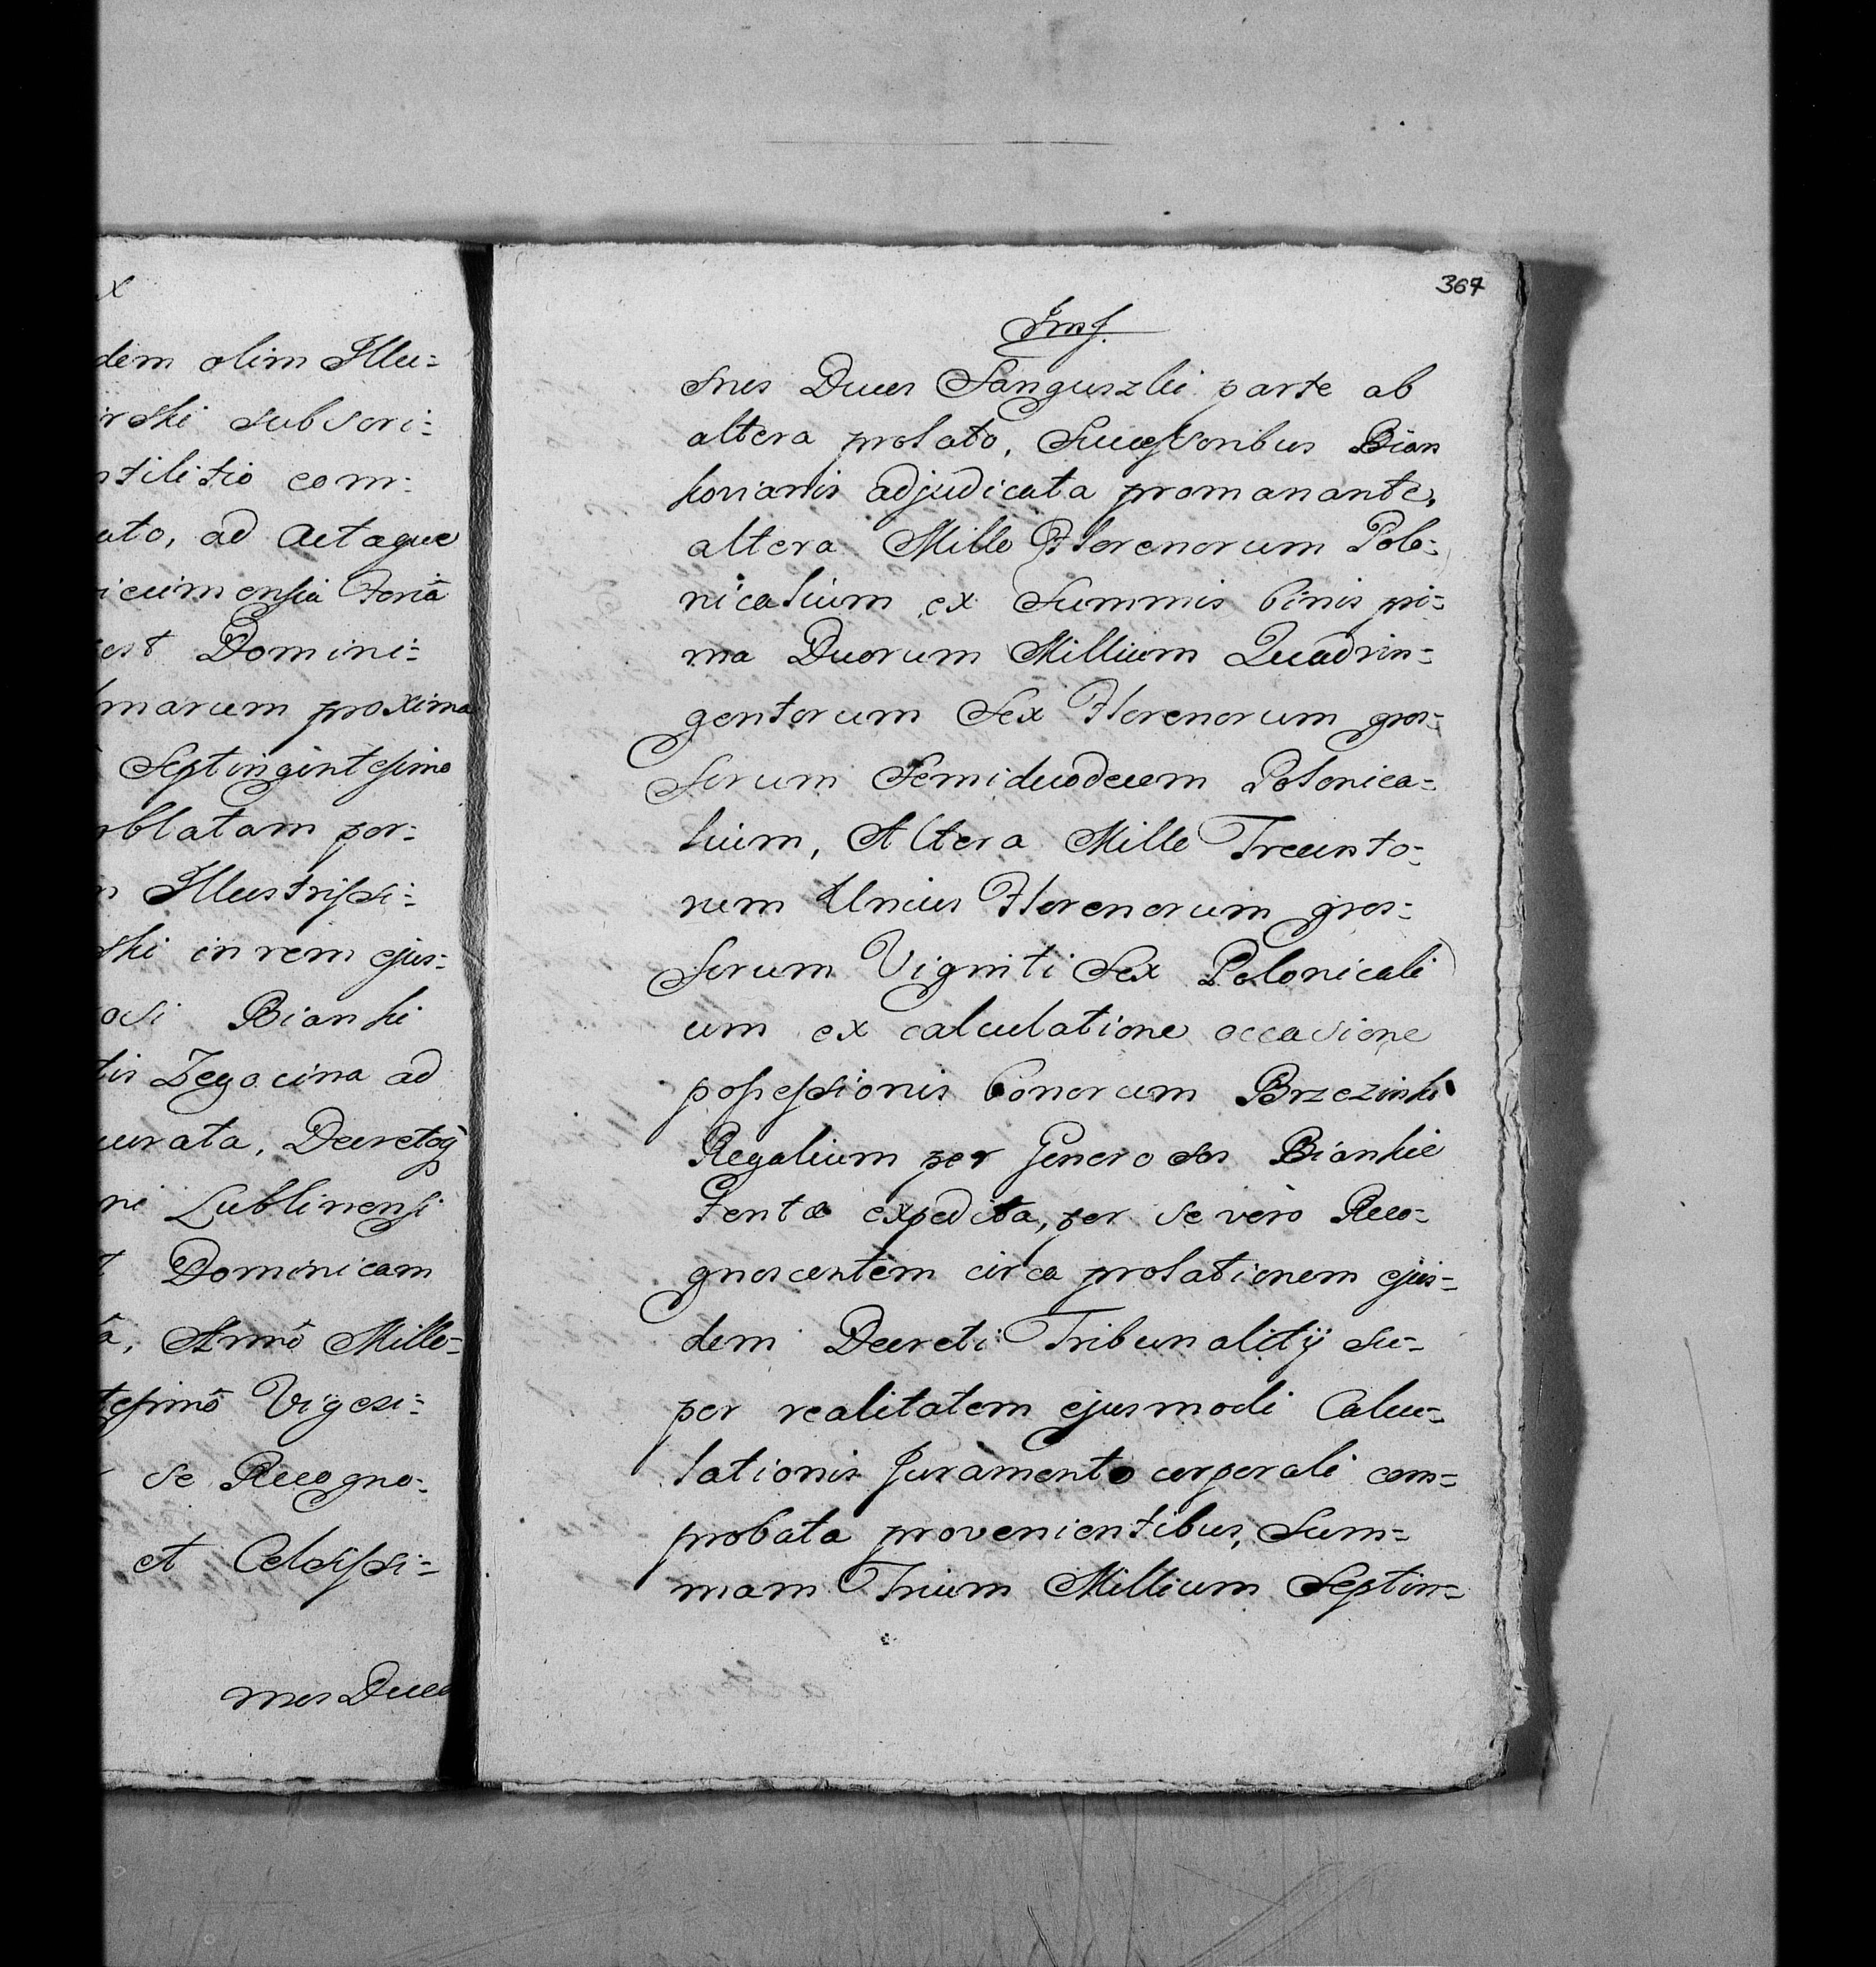 x
dem olim Illu=
rski subscri=
ntilitio com=
ato, ad Actaque
icumensia Feria
est Domini=
lmarum proxima
Septingintesimo
oblatam per=
n Illustrissi=
ski in rem ejus=
osi Bianki
tis Zegocina ad
curata, Decretoq
ni Lublinensi
t Dominicam
a, Annô Mille=
tesimô Vigesi=
se Recogno=
et Celsissi=
mos Duces
367
mos Duces Sanguszki parte ab
altera prolato, Successoribus Bian
kovianis adjudicata promanante,
altera Mille Florenorum Polo=
nicalium ex Summis binis pri=
ma Duorum Millium Quadrin=
gentorum Sex Florenorum gros=
sorum Semiduodecem Polonica=
lium, Altera Mille Trecento=
rum Unius Florenorum gros=
sorum Viginti Sex Polonicali
um ex calculatione occasione
possessionis bonorum Brzezinki
Regalium per Generosos Biankie
tentæ expedita, per se verò Reco=
gnoscentem circa prolationem ejus=
dem Decreti Tribunalitij su=
per realitatem ejusmodi Calcu=
lationis Juramento corporali com=
probata provenientibus, Sum=
mam Trium Millium Septin=